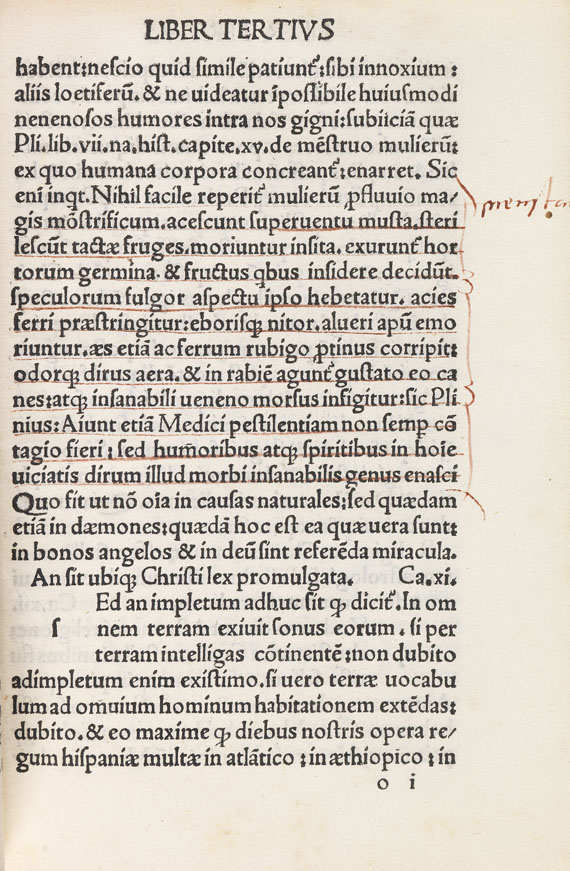 LIBER TERTIVS
habent:nescio quid simile patiunt᷑:sibi innoxium :
aliis loetiferū. & ne uideatur īpossibile huiusmodi
nenenosos humores intra nos gigni:subiiciā quæ
Pli.lib.vii.na.hist.capite.xv.de mēstruo mulierū:
ex quo humana corpora concreant᷑:enarret. Sic
eni inqt.Nihil facile reperit᷑ mulierū ꝓfluuio ma⸗
gis mōstrificum.acescunt superuentu musta.steri
lescūt tactæ fruges.moriuntur insita. exurunt᷑ hor
torum germina. & fructus qbus insidere decidūt.
speculorum fulgor aspectu ipso hebetatur. acies
ferri præstringitur:eborisqꝫ nitor.alueri apū emo
riuntur.æs etiā ac ferrum rubigo ꝓtinus corripit:
odorqꝫ dirus aera. & in rabiē agunt᷑ gustato eo ca
nes:atqꝫ insanabili ueneno morsus infigitur:sic Pli
nius: Aiunt etiā Medici pestilentiam non semp cō
tagio fieri : sed humoribus atqꝫ spiritibus in hoīe
uiciatis dirum illud morbi insanabilis genus enasci
Quo fit ut nō oīa in causas naturales:sed quædam
etiā in dæmones:quædā hoc est ea quæ uera sunt:
in bonos angelos & in deū sint referēda miracula.
An sit ubiqꝫ Christi lex promulgata. Ca.xi.
Ed an impletum adhuc sit ꝙ dicit᷑.In om
s nem terram exiuit sonus eorum . si per
terram intelligas cōtinentē:non dubito
adimpletum enim existimo.si uero terræ uocabu
lum ad omuium hominum habitationem extēdas:
dubito. & eo maxime ꝙ diebus nostris opera re⸗
gum hispaniæ multæ in atlātico : in æthiopico : in
o i